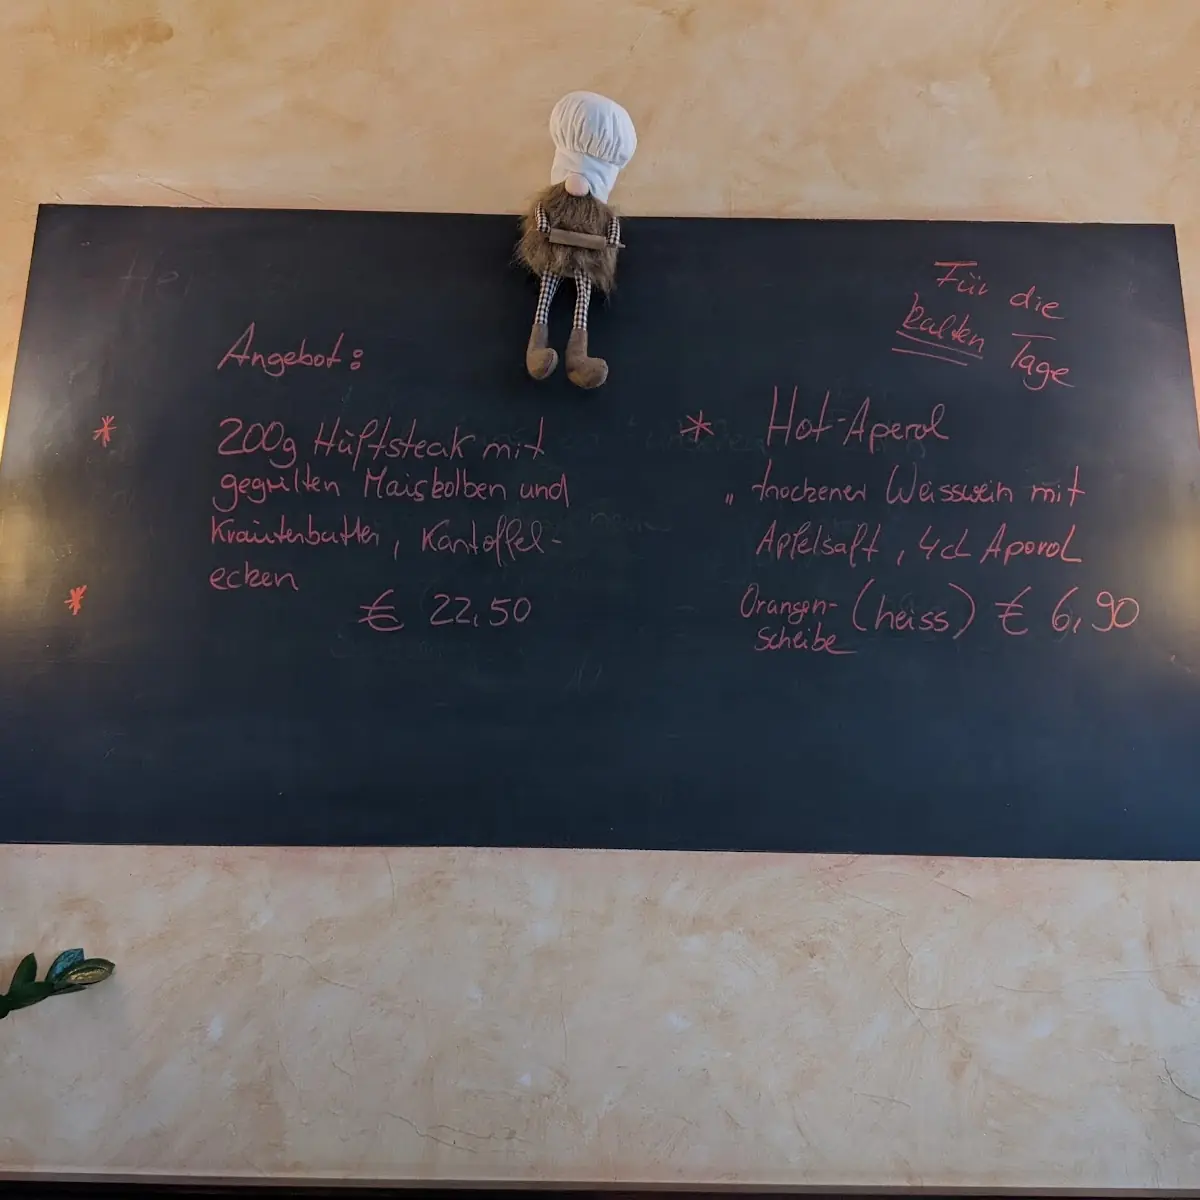 Angebot:
* 200g Hüftsteak mit
gegrillten Maiskolben und
Kräuterbutter, Kartoffel-
ecken
*
€ 22,50
Für die
kalten Tage
* Hot-Aperol
" trockener Weisswein mit
Apfelsaft, 4cl Aperol
Orangen-
scheibe (heiss) € 6,90